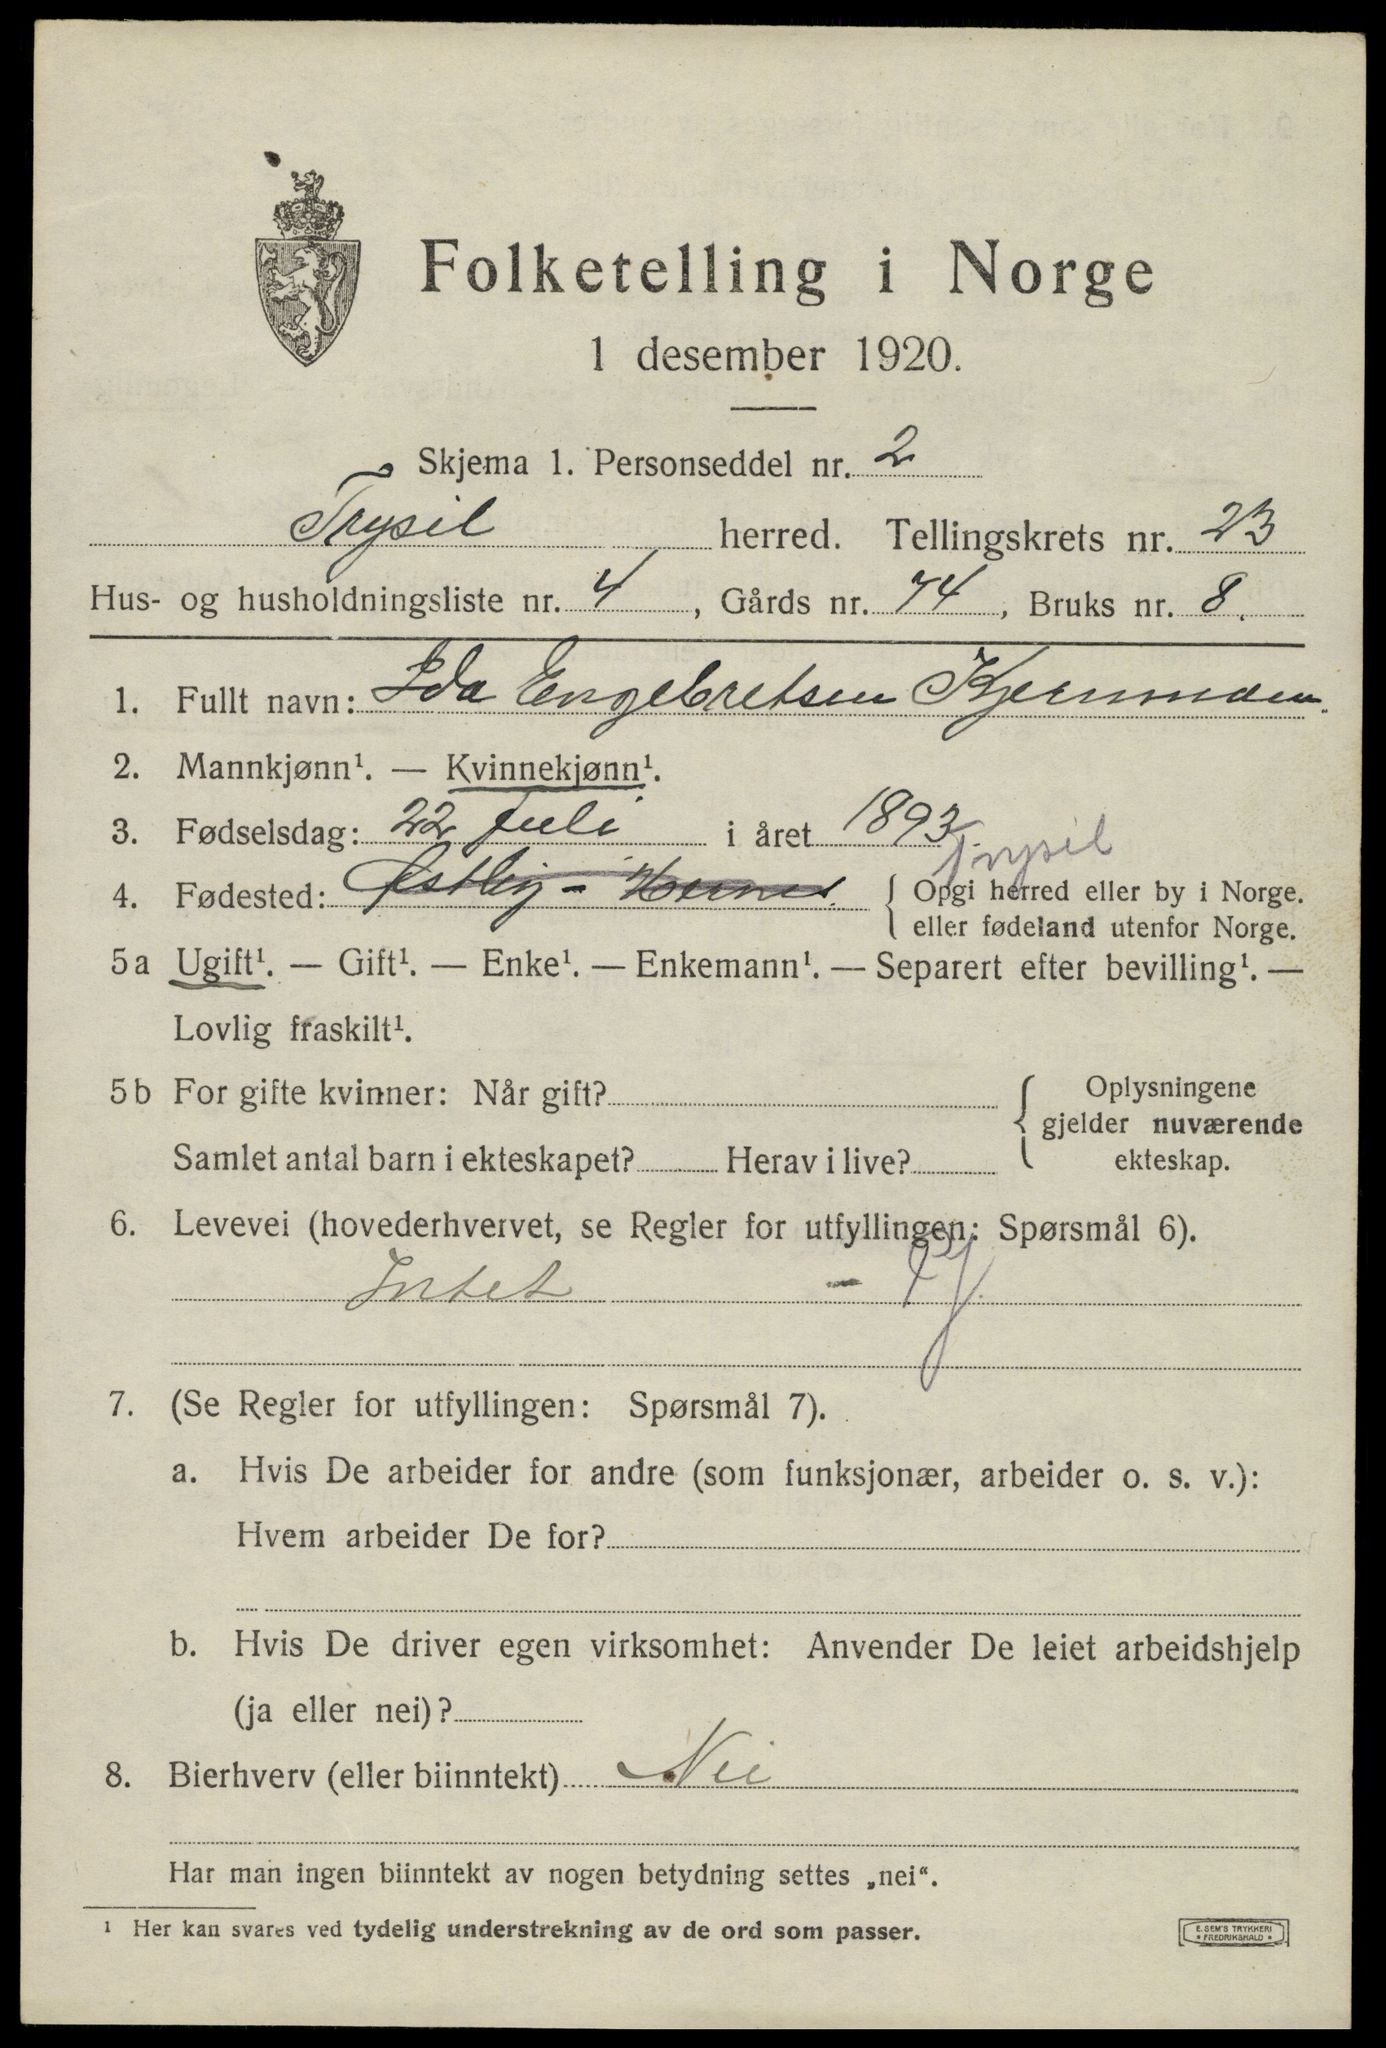 Folketelling i Norge
1 desember 1920.
Skjema 1. Personseddel nr. 2
Trysil herred. Tellingskrets nr. 23
Hus- og husholdningsliste nr. 4, Gårds nr. 74, Bruks nr. 8.
1. Fullt navn: Ida Engebretsen Kjernmoen.
2. Mannkjønn¹. — Kvinnekjønn¹.
3. Fødselsdag: 22 Juli i året 1893.
Trysil
4. Fødested: Østby - { Opgi herred eller by i Norge.
eller fødeland utenfor Norge.
5a Ugift¹. — Gift¹. — Enke¹. — Enkemann¹. — Separert efter bevilling¹. —
Lovlig fraskilt¹.
5b For gifte kvinner: Når gift? { Oplysningene
gjelder nuværende
Samlet antal barn i ekteskapet? Herav i live? ekteskap.
6. Levevei (hovederhvervet, se Regler for utfyllingen: Spørsmål 6).
Intet -
7. (Se Regler for utfyllingen: Spørsmål 7).
a. Hvis De arbeider for andre (som funksjonær, arbeider o. s. v.):
Hvem arbeider De for?
b. Hvis De driver egen virksomhet: Anvender De leiet arbeidshjelp
(ja eller nei)?
8. Bierhverv (eller biinntekt) Nei
Har man ingen biinntekt av nogen betydning settes „nei“.
¹ Her kan svares ved tydelig understrekning av de ord som passer.
E. SEM'S TRYKKERI
* FREDRIKSHALD *